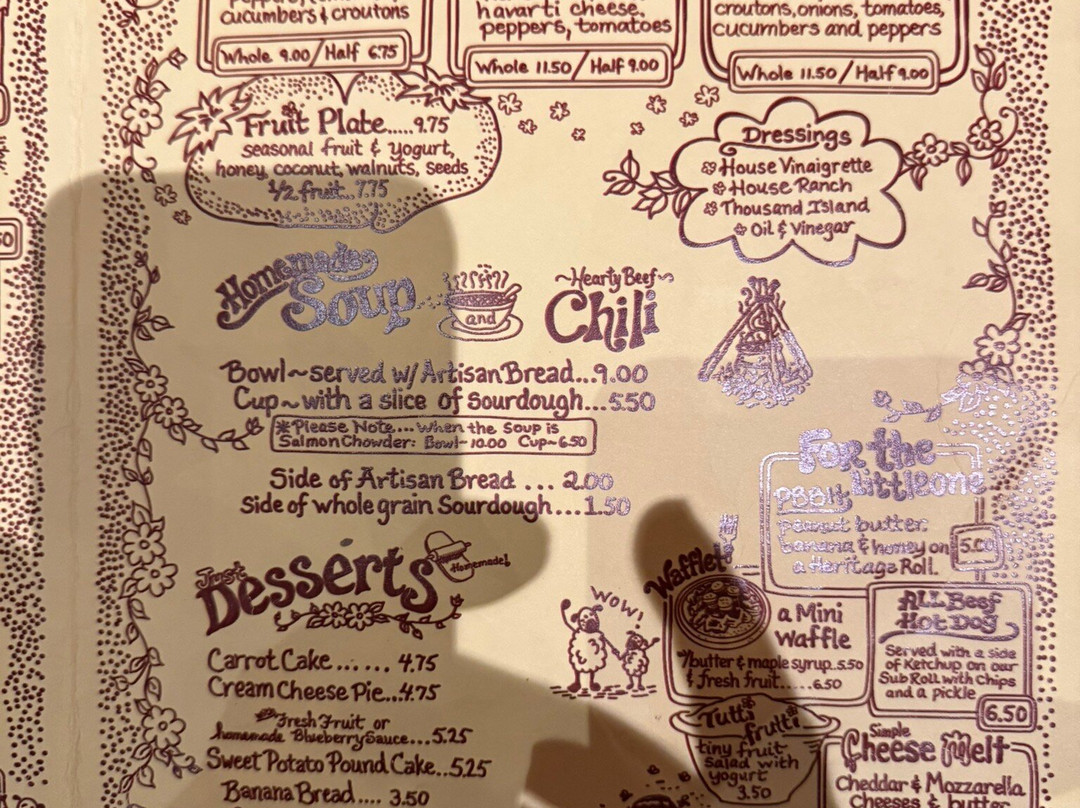 cucumbers & croutons
Whole 9.00 / Half 6.75
havarti cheese,
peppers, tomatoes
Whole 11.50 / Half 9.00
croutons, onions, tomatoes,
cucumbers and peppers
Whole 11.50 / Half 9.00
Fruit Plate.....9.75
seasonal fruit & yogurt,
honey, coconut, walnuts, seeds
1/2 fruit..7.75
Dressings
House Vinaigrette
House Ranch
Thousand Island
Oil & Vinegar
Homemade
Soup
and
~Hearty Beef~
Chili
Bowl~served w/ Artisan Bread...9.00
Cup~with a slice of Sourdough...5.50
*Please Note...when the soup is
Salmon Chowder: Bowl~10.00 Cup~6.50
Side of Artisan Bread ... 2.00
side of whole grain Sourdough...1.50
Just
Desserts
Homemade!
Carrot Cake ...... 4.75
Cream Cheese Pie...4.75
Fresh Fruit or
homemade Blueberry Sauce...5.25
Sweet Potato Pound Cake..5.25
Banana Bread .... 3.50
For the
Little one
PBBH
peanut butter
banana & honey on
a Heritage Roll.
WOW!
Wafflet
a Mini
Waffle
w/butter & maple syrup..5.50
& fresh fruit.....6.50
ALL Beef
Hot Dog
Served with a side
of Ketchup on our
Sub Roll with chips
and a pickle
6.50
Tutti
frutti
tiny fruit
salad with
yogurt
3.50
Simple
Cheese Melt
Cheddar & Mozzarella